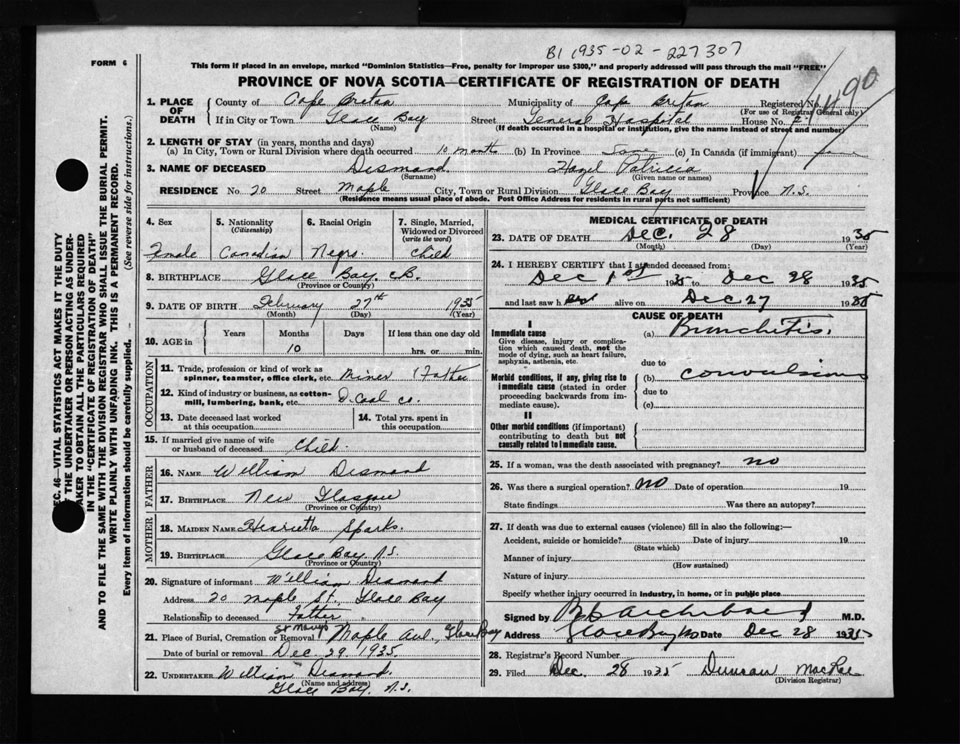 B1 1935-02-227307
FORM 6
This form if placed in an envelope, marked "Dominion Statistics—Free, penalty for improper use $300," and properly addressed will pass through the mail "FREE"
PROVINCE OF NOVA SCOTIA—CERTIFICATE OF REGISTRATION OF DEATH
1. PLACE OF DEATH County of Cape Breton Municipality of Cape Breton Registered No.
(For use of Registrar General only)
If in City or Town Glace Bay Street General Hospital House No.
(Name) (If death occurred in a hospital or institution, give the name instead of street and number)
2. LENGTH OF STAY (in years, months and days)
(a) In City, Town or Rural Division where death occurred 10 months (b) In Province Same (c) In Canada (if immigrant)
3. NAME OF DECEASED Dismard Hazel Patricia
(Surname) (Given name or names)
RESIDENCE No. 20 Street Maple City, Town or Rural Division Glace Bay Province N.S.
(Residence means usual place of abode. Post Office Address for residents in rural parts not sufficient)
4. Sex 5. Nationality (Citizenship) 6. Racial Origin 7. Single, Married, Widowed or Divorced (write the word)
Female Canadian Negro Child
8. BIRTHPLACE Glace Bay, C.B.
(Province or Country)
9. DATE OF BIRTH February 27th 1935
(Month) (Day) (Year)
10. AGE in Years Months Days If less than one day old
10 hrs. or min.
OCCUPATION
11. Trade, profession or kind of work as spinner, teamster, office clerk, etc. Miner (Father
12. Kind of industry or business, as cotton-mill, lumbering, bank, etc. D. Coal Co.
13. Date deceased last worked at this occupation 14. Total yrs. spent in this occupation
15. If married give name of wife or husband of deceased Child.
FATHER
16. NAME William Dismard
17. BIRTHPLACE New Glasgow
(Province or Country)
MOTHER
18. MAIDEN NAME Henrietta Sparks.
19. BIRTHPLACE Glace Bay N.S.
(Province or Country)
20. Signature of informant William Dismard
Address 20 Maple St., Glace Bay
Relationship to deceased Father
St Marys
21. Place of Burial, Cremation or Removal Maple Ave., Glace Bay
Date of burial or removal Dec. 29. 1935.
22. UNDERTAKER William Dismard.
(Name and address)
Glace Bay, N.S.
MEDICAL CERTIFICATE OF DEATH
23. DATE OF DEATH Dec. 28 1935
(Month) (Day) (Year)
24. I HEREBY CERTIFY that I attended deceased from:
Dec 1st 1935 to Dec 28 1935
and last saw her alive on Dec 27 1935
CAUSE OF DEATH
I
Immediate cause (a) Bronchitis.
Give disease, injury or complication which caused death, not the mode of dying, such as heart failure, asphyxia, asthenia, etc.
due to
Morbid conditions, if any, giving rise to immediate cause (stated in order proceeding backwards from immediate cause).
(b) convulsions
due to
(c)
II
Other morbid conditions (if important) contributing to death but not causally related to immediate cause.
25. If a woman, was the death associated with pregnancy? no
26. Was there a surgical operation? no Date of operation 19
State findings Was there an autopsy?
27. If death was due to external causes (violence) fill in also the following:—
Accident, suicide or homicide? Date of injury 19
(State which)
Manner of injury
(How sustained)
Nature of injury
Specify whether injury occurred in industry, in home, or in public place
Signed by Archibald M.D.
Address Glace Bay Date Dec 28 1935
28. Registrar's Record Number
29. Filed Dec. 28 1935 Duncan MacRae
(Division Registrar)
EC. 46—VITAL STATISTICS ACT MAKES IT THE DUTY
F THE UNDERTAKER OR PERSON ACTING AS UNDER-
AKER TO OBTAIN ALL THE PARTICULARS REQUIRED
IN THE "CERTIFICATE OF REGISTRATION OF DEATH"
AND TO FILE THE SAME WITH THE DIVISION REGISTRAR WHO SHALL ISSUE THE BURIAL PERMIT.
WRITE PLAINLY WITH UNFADING INK. THIS IS A PERMANENT RECORD.
Every item of information should be carefully supplied. (See reverse side for instructions.)